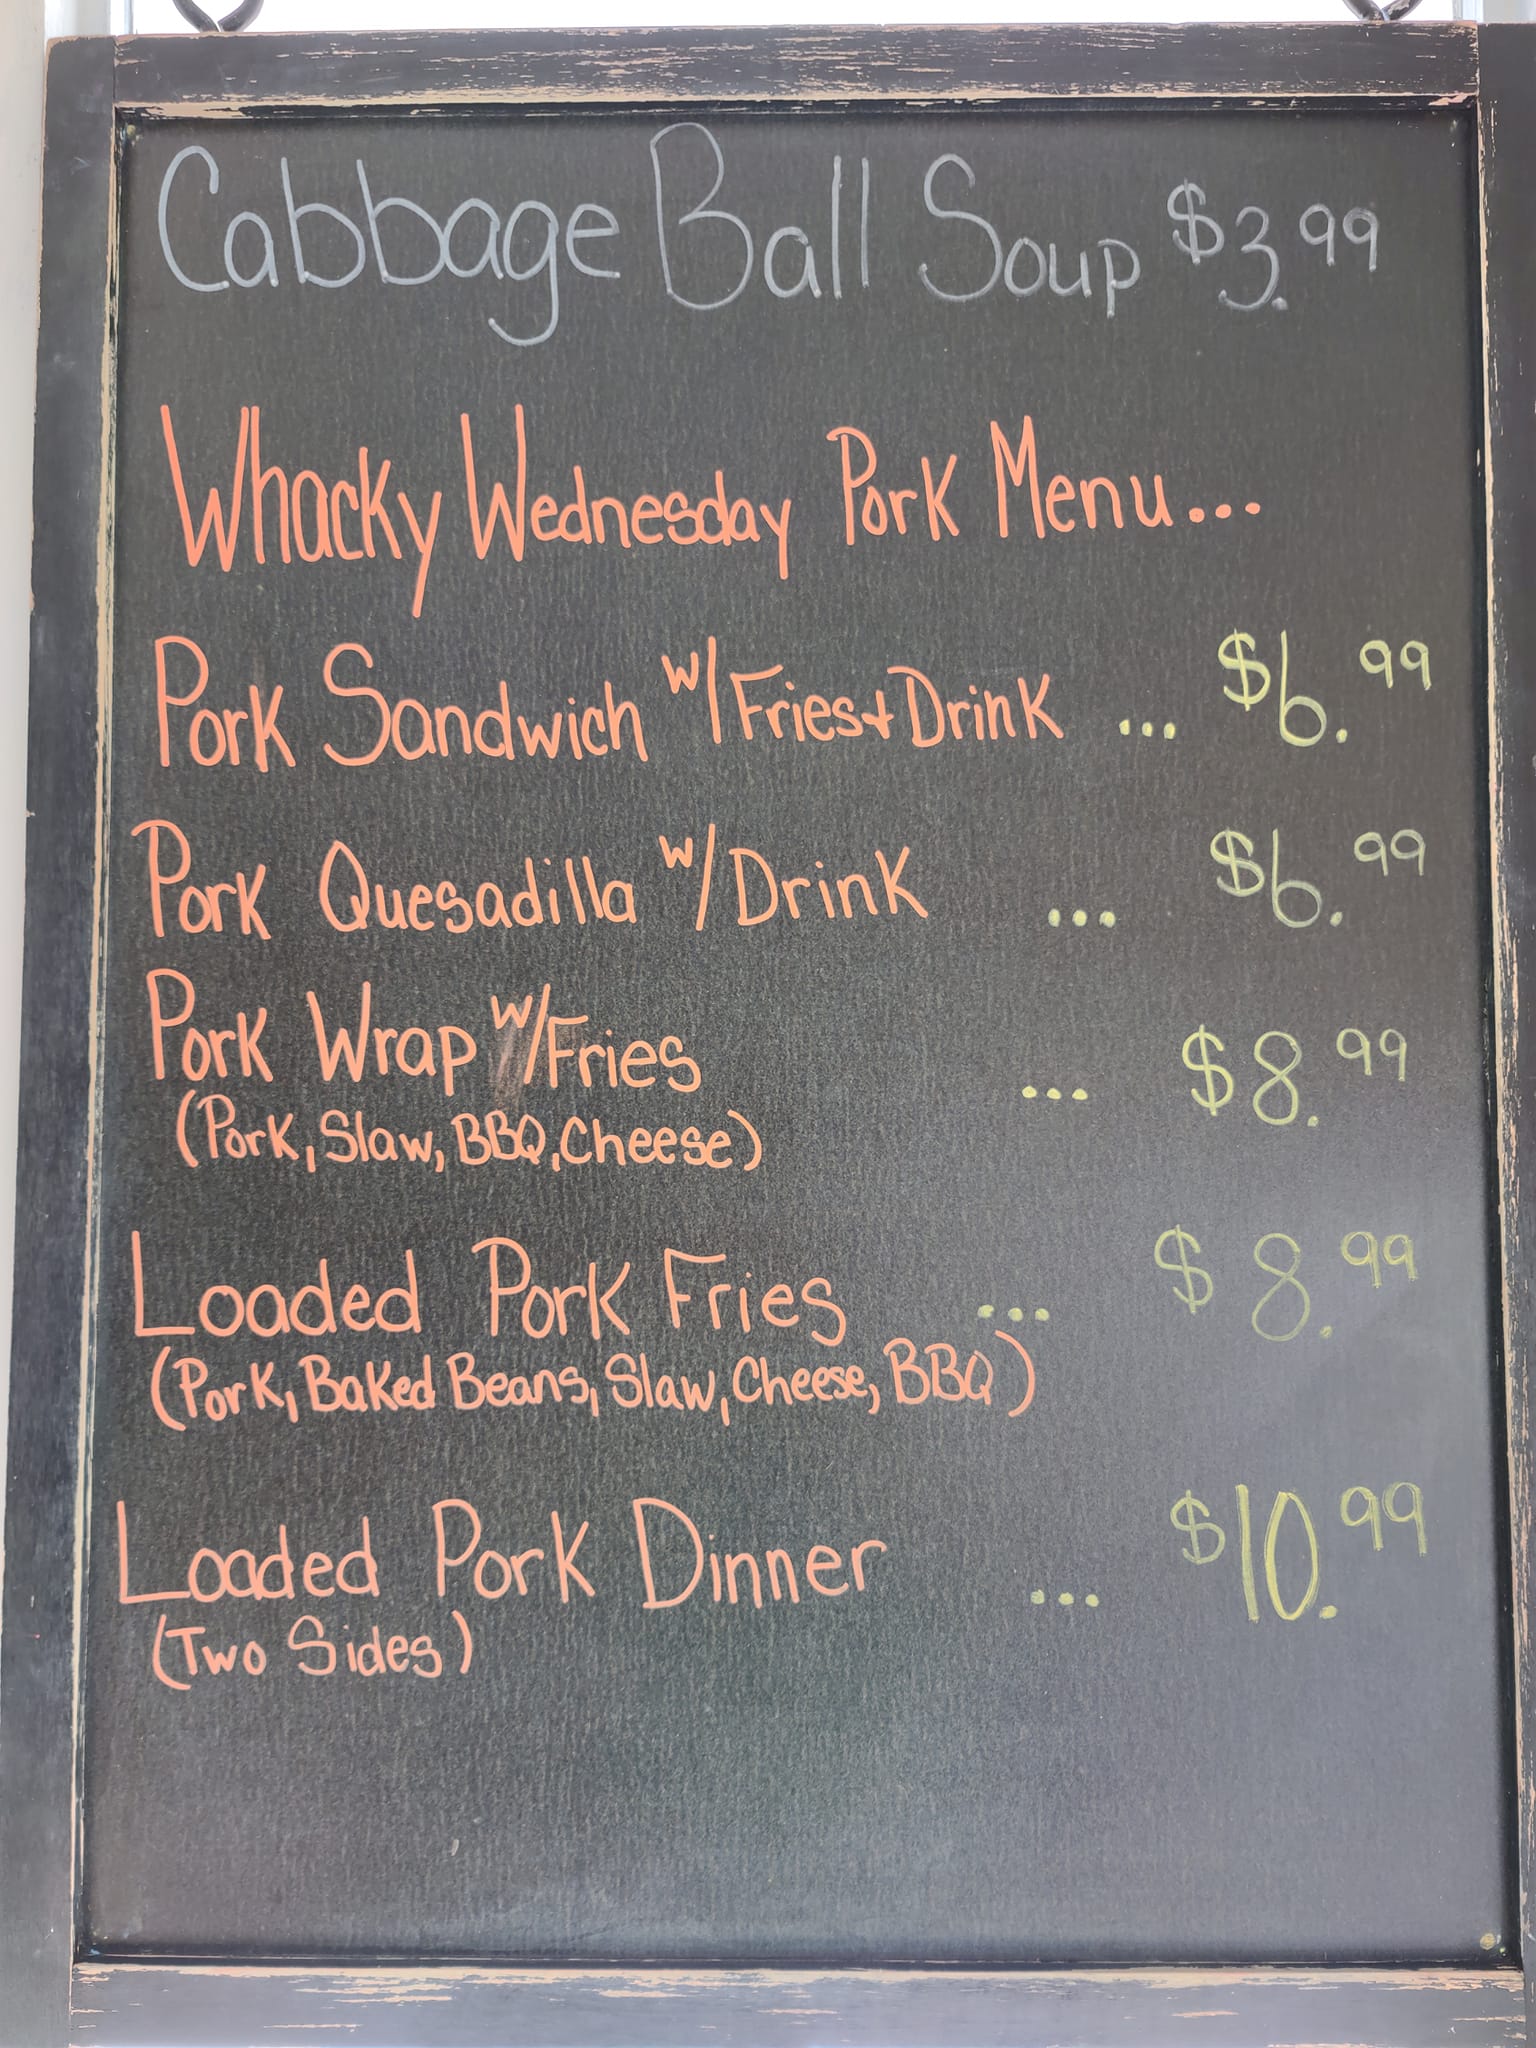 Cabbage Ball Soup $3.99
Whacky Wednesday Pork Menu...
Pork Sandwich w/Fries+Drink ... $6.99
Pork Quesadilla w/Drink ... $6.99
Pork Wrap w/Fries ... $8.99
(Pork, Slaw, BBQ, Cheese)
Loaded Pork Fries ... $8.99
(Pork, Baked Beans, Slaw, Cheese, BBQ)
Loaded Pork Dinner ... $10.99
(Two Sides)